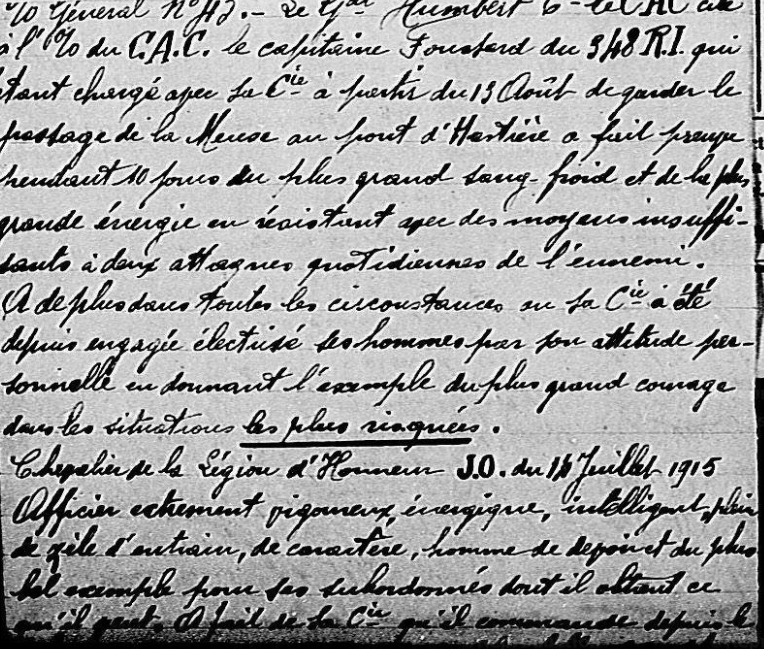 Général N° 42. - Le Gal Humbert Ct le CAC cite
à l'O/O du C.A.C. le capitaine Foustard du 348 R.I. qui
étant chargé avec sa Cie à partir du 13 Août de garder le
passage de la Meuse au pont d'Hastière a fait preuve
pendant 10 jours du plus grand sang-froid et de la plus
grande énergie en résistant avec des moyens insuffi-
sants à deux attaques quotidiennes de l'ennemi.
A de plus dans toutes les circonstances ou sa Cie a été
depuis engagée électrisé ses hommes par son attitude per-
sonnelle en donnant l'exemple du plus grand courage
dans les situations les plus risquées.
Chevalier de la Légion d'Honneur J.O. du 14 Juillet 1915
Officier extrement vigoureux, énergique, intelligent, plein
de zèle d'entrain, de caractère, homme de devoir et du plus
bel exemple pour ses subordonnés dont il obtient ce
qu'il veut. A fait de la Cie qu'il commande depuis le